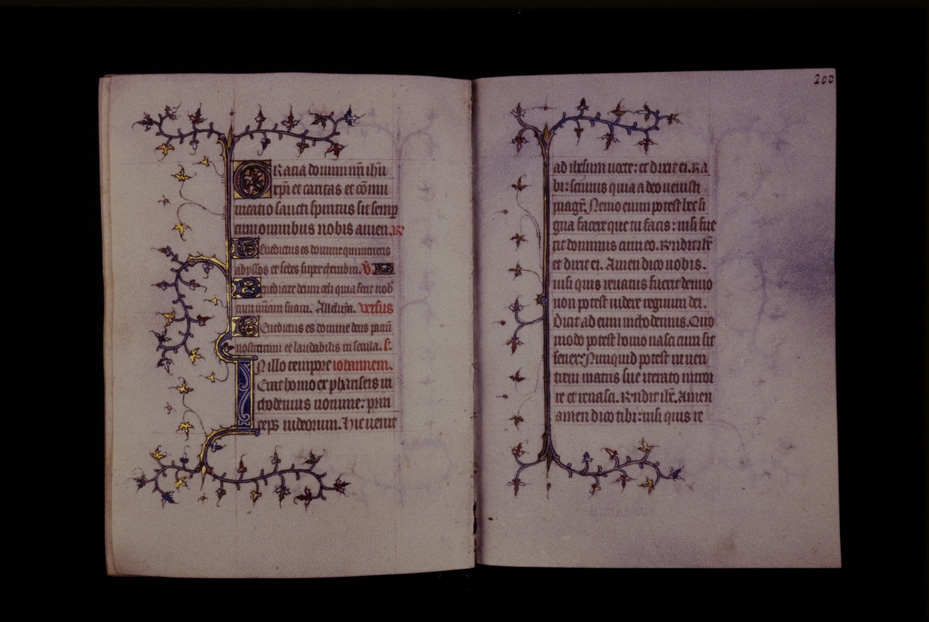 Gratia domini nr̄i ih̄u
xp̄i et caritas et cōmu
nicatio sancti spiritus sit semp
cum omnibus nobis amen. R
Benedictus es domine qui intueris
abyssos et sedes super cherubin. V̄
Benedicite deum celi quia fecit nob̄
cum miam̄ suam. Alleluya. versus
Benedictus es domine deus patrū
nostrorum et laudabilis in secula. S.
In illo tempore iohannem.
Erat homo ex phariseis ni
chodemus nomine: prin
ceps iudeorum. Hic uenit
200
ad ihesum nocte: et dixit ei. Ra
bi: scimus quia a deo uenisti
magr̄. Nemo enim potest hec si
gna facere que tu facis: nisi fue
rit dominus cum eo. Rn̄dit ih̄c
et dixit ei. Amen dico uobis.
nisi quis renatus fuerit denuo
non potest uidere regnum dei.
Dixit ad eum nichodemus. Quo
modo potest homo nasci cum sit
senex: Nunquid potest in uen
trem matris sue iterato introi
re et renasci. Rn̄dit ih̄c. Amen
amen dico tibi: nisi quis re